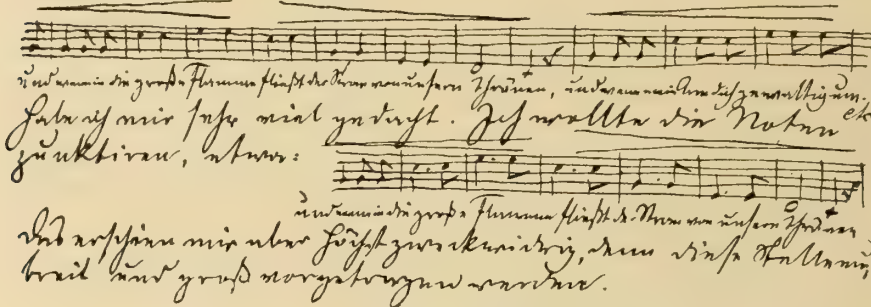 und wenn in die große Flamme fließt der Strom von unsern Thränen, und wenn mein Arm dich gewaltig um-
habe ich mir sehr viel gedacht. Ich wollte die Noten etc
punktiren, etwa:
und wenn in die große Flamme fließt der Strom von unsern Thränen
Das erschien mir aber höchst zweckwidrig, denn diese Stelle mu
breit und groß vorgetragen werden.